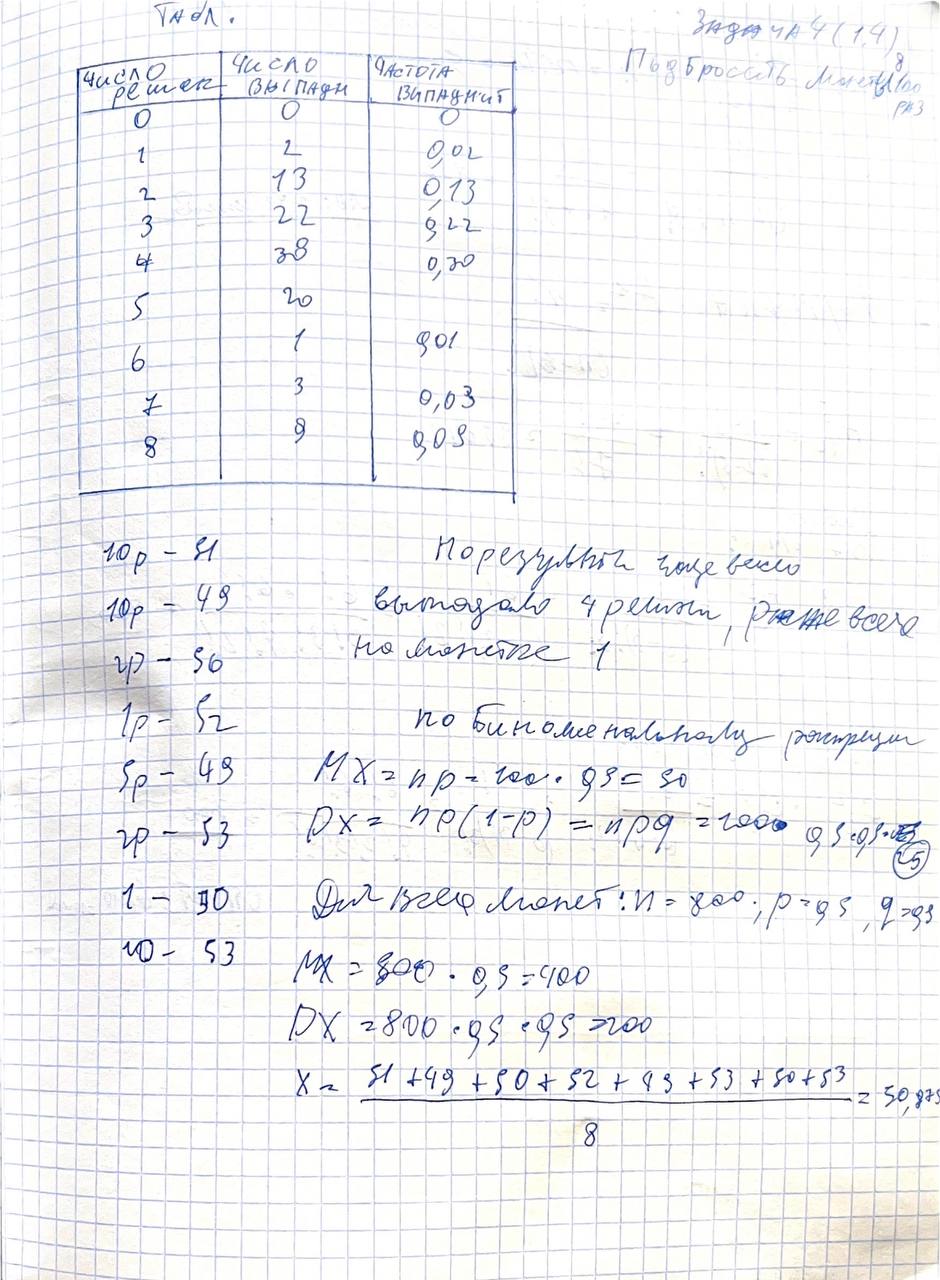 Табл.
Задача 4 (1,4)
Подбросить монеты 100
8
раз
Число решек
Число выпадн
Частота випаднит
0 0 0
1 2 0,02
2 13 0,13
3 22 0,22
4 30 0,30
5 20
6 1 0,01
7 3 0,03
8 9 0,09
10р - 51
10р - 49
2р - 50
1р - 52
5р - 49
2р - 53
1 - 50
10 - 53
По чаще всего
выпадало 4 решки, реже всего
на монетке 1
по биноменальному
MX = np = 100 · 0,5 = 50
DX = np(1-p) = npq = 100 0,5·0,5
25
Для всех монет: n = 800; p = 0,5, q = 0,5
MX = 800 · 0,5 = 400
DX = 800 · 0,5 · 0,5 = 200
X = 51 + 49 + 50 + 52 + 49 + 53 + 50 + 53 = 50,875
8